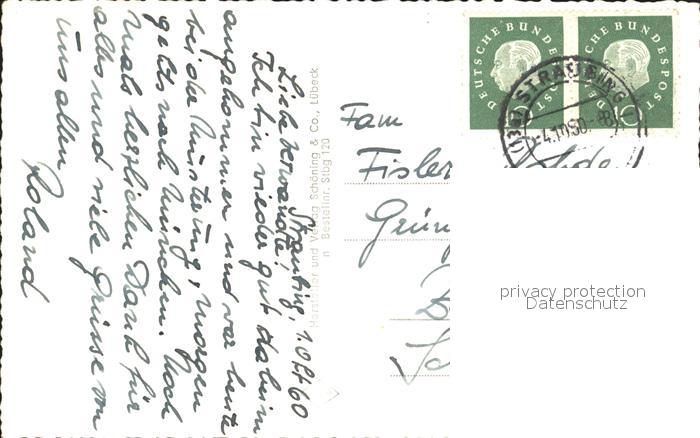 Straubing, 1. Okt 60
Liebe Verwandte!
Ich bin wieder gut daheim
angekommen und war heute
bei der Musterung, morgen
gehts nach München. Noch
mals herzlichen Dank für
alles und viele Grüsse von
uns allen
Roland
Hersteller und Verlag Schöning & Co., Lübeck
Bestellnr. Stbg 120
Fam
Fisler
Grün
DEUTSCHE BUNDESPOST
DEUTSCHE BUNDESPOST
STRAUBING
-4.10.60.-8
privacy protection
Datenschutz